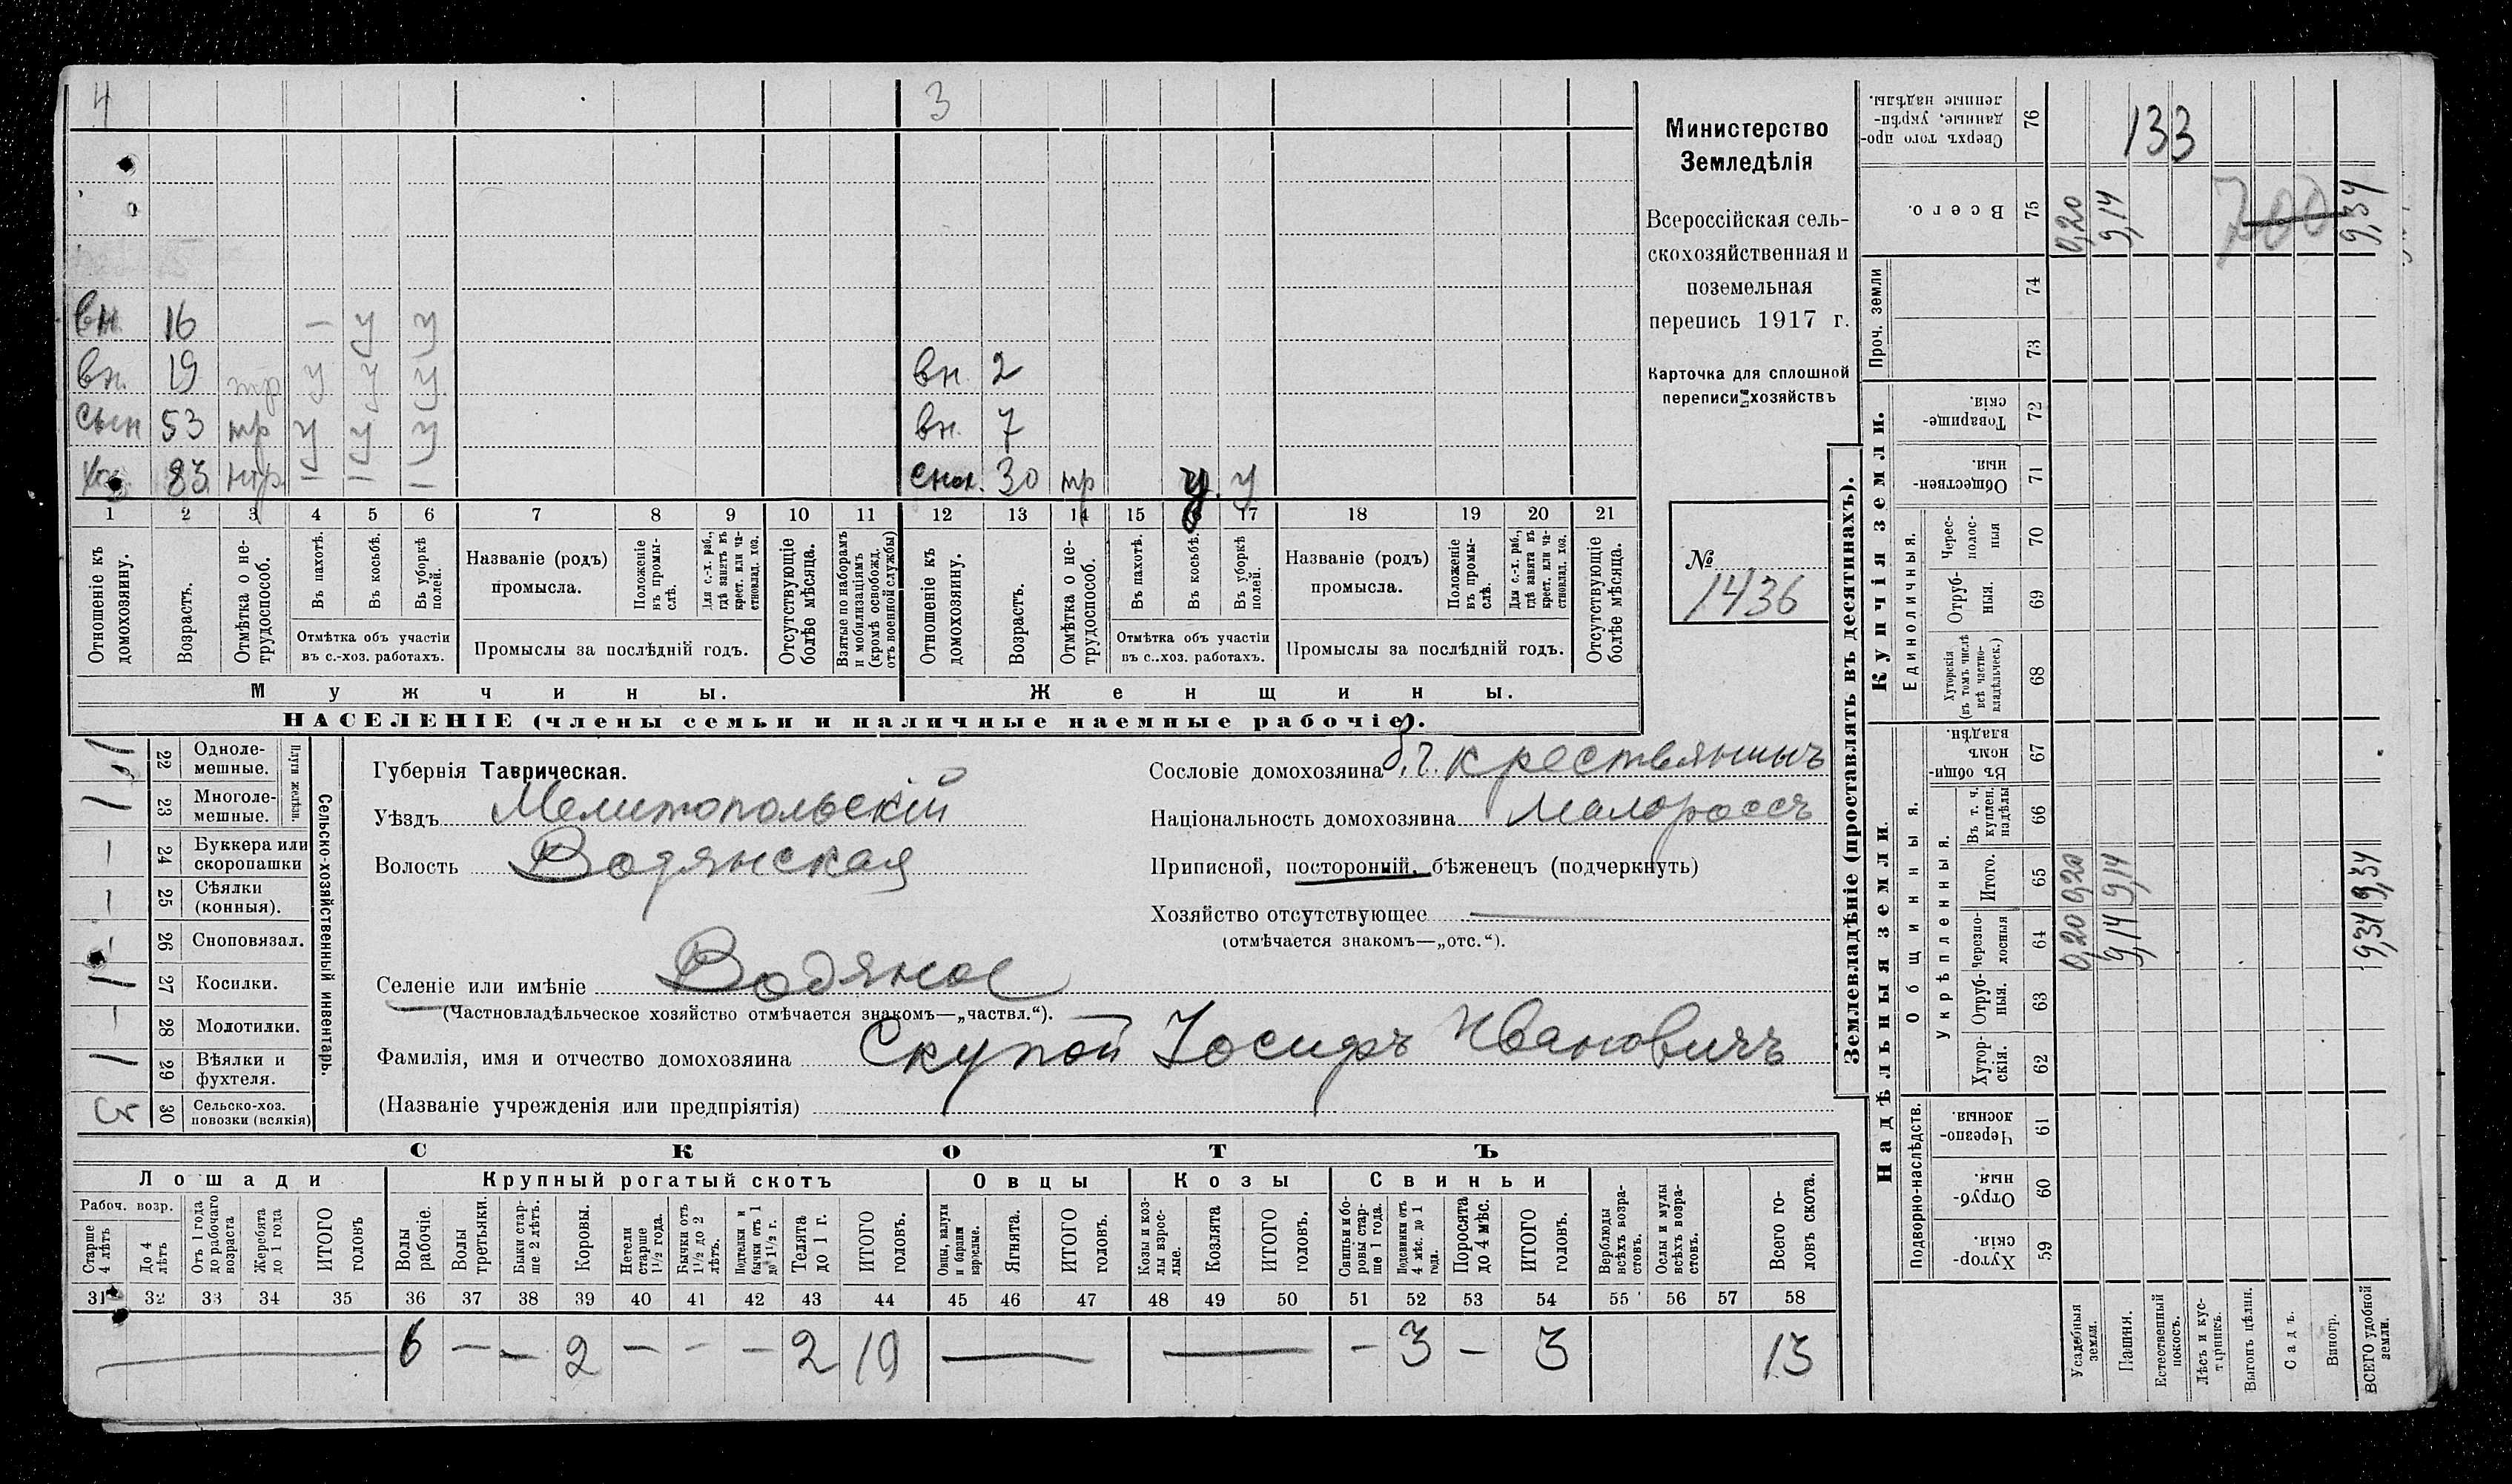 4 3
вн. 16 — у у
вн. 19 тр у у у вн. 2
сын 53 тр у у у вн. 7
хоз 83 нтр — — — снох. 30 тр у. у
1 2 3 4 5 6 7 8 9 10 11 12 13 14 15 16 17 18 19 20 21
Отношеніе къ домохозяину.
Возрастъ.
Отмѣтка о нетрудоспособ.
Въ пахотѣ.
Въ косьбѣ.
Въ уборкѣ полей.
Отмѣтка объ участіи
въ с.-хоз. работахъ.
Названіе (родъ)
промысла.
Положеніе въ промыслѣ.
Для с.-х. раб., гдѣ занятъ въ крест. или частновлад. хоз.
Промыслы за послѣдній годъ.
Отсутствующіе болѣе мѣсяца.
Взятые по наборамъ и мобилизаціямъ (кромѣ освобожд. отъ военной службы)
Отношеніе къ домохозяину.
Возрастъ.
Отмѣтка о нетрудоспособ.
Въ пахотѣ.
Въ косьбѣ.
Въ уборкѣ полей.
Отмѣтка объ участіи
въ с..хоз. работахъ.
Названіе (родъ)
промысла.
Положеніе въ промыслѣ.
Для с.-х. раб., гдѣ занятъ въ крест. или частновлад. хоз.
Промыслы за послѣдній годъ.
Отсутствующіе болѣе мѣсяца.
Мужчины. Женщины.
НАСЕЛЕНІЕ (члены семьи и наличные наемные рабочіе).
Министерство
Земледѣлія
Всероссійская сель-
скохозяйственная и
поземельная
перепись 1917 г.
Карточка для сплошной
переписи хозяйствъ
№
1436
Сельско-хозяйственный инвентарь.
Плуги желѣзн.
22 Одноле-
мешные.
23 Многоле-
мешные.
24 Буккера или
скоропашки
25 Сѣялки
(конныя).
26 Сноповязал.
27 Косилки.
28 Молотилки.
29 Вѣялки и
фухтеля.
30 Сельско-хоз.
повозки (всякія)
Губернія Таврическая.
Уѣздъ Мелитопольскій
Волость Водянская
Селеніе или имѣніе Водяное
(Частновладѣльческое хозяйство отмѣчается знакомъ—„частвл.“).
Фамилія, имя и отчество домохозяина Скупой Іосифъ Ивановичъ
(Названіе учрежденія или предпріятія)
Сословіе домохозяина крестьянинъ
Національность домохозяина Малороссъ
Приписной, посторонній, бѣженецъ (подчеркнуть)
Хозяйство отсутствующее —
(отмѣчается знакомъ—„отс.“).
СКОТЪ
Лошади Крупный рогатый скотъ Овцы Козы Свиньи
Рабоч. возр.
Старше 4 лѣтъ
До 4 лѣтъ
Отъ 1 года до рабочаго возраста
Жеребята до 1 года
ИТОГО головъ
Волы рабочіе.
Волы третьяки.
Быки старше 2 лѣтъ.
Коровы.
Нетели старше 1½ года.
Бычки отъ 1½ до 2 лѣтъ.
Подтелки и бычки отъ 1 до 1½ г.
Телята до 1 г.
ИТОГО головъ.
Овцы, валухи и бараны взрослые.
Ягнята.
ИТОГО головъ.
Козы и козлы взрослые.
Козлята
ИТОГО головъ.
Свиньи и боровы старше 1 года.
Подсвинки отъ 4 мѣс. до 1 года.
Поросята до 4 мѣс.
ИТОГО головъ.
Верблюды всѣхъ возрастовъ.
Ослы и мулы всѣхъ возрастовъ.
Всего головъ скота.
31 32 33 34 35 36 37 38 39 40 41 42 43 44 45 46 47 48 49 50 51 52 53 54 55 56 57 58
— 6 — — 2 — — — 2 10 — — — 3 — 3 13
Землевладѣніе (проставлять въ десятинахъ).
Купчія земли.
Надѣльныя земли.
Сверхъ того проданные, укрѣпленные надѣлы. 76 133
Всего. 75 0,20 9,14 700 9,34
Проч. земли 74
73
Товарищескія. 72
Общественныя. 71
Единоличныя.
Чересполосныя 70
Отрубныя. 69
Хуторскія (въ томъ числѣ всѣ частновладѣльческ.) 68
Общинныя.
Въ общиномъ владѣн. 67
Укрѣпленныя.
Въ т. ч. куплен. надѣлы 66
Итого. 65 0,20 9,14 9,34
Черезполосныя 64 0,20 9,14 9,34
Отрубныя. 63
Хуторскія. 62
Подворно-наслѣдств.
Черезполосныя. 61
Отрубныя. 60
Хуторскія. 59
Усадебныя земли.
Пашня.
Естественный покосъ.
Лѣсъ и кустарникъ.
Выгонъ цѣлин.
Садъ.
Виногр.
ВСЕГО удобной земли.